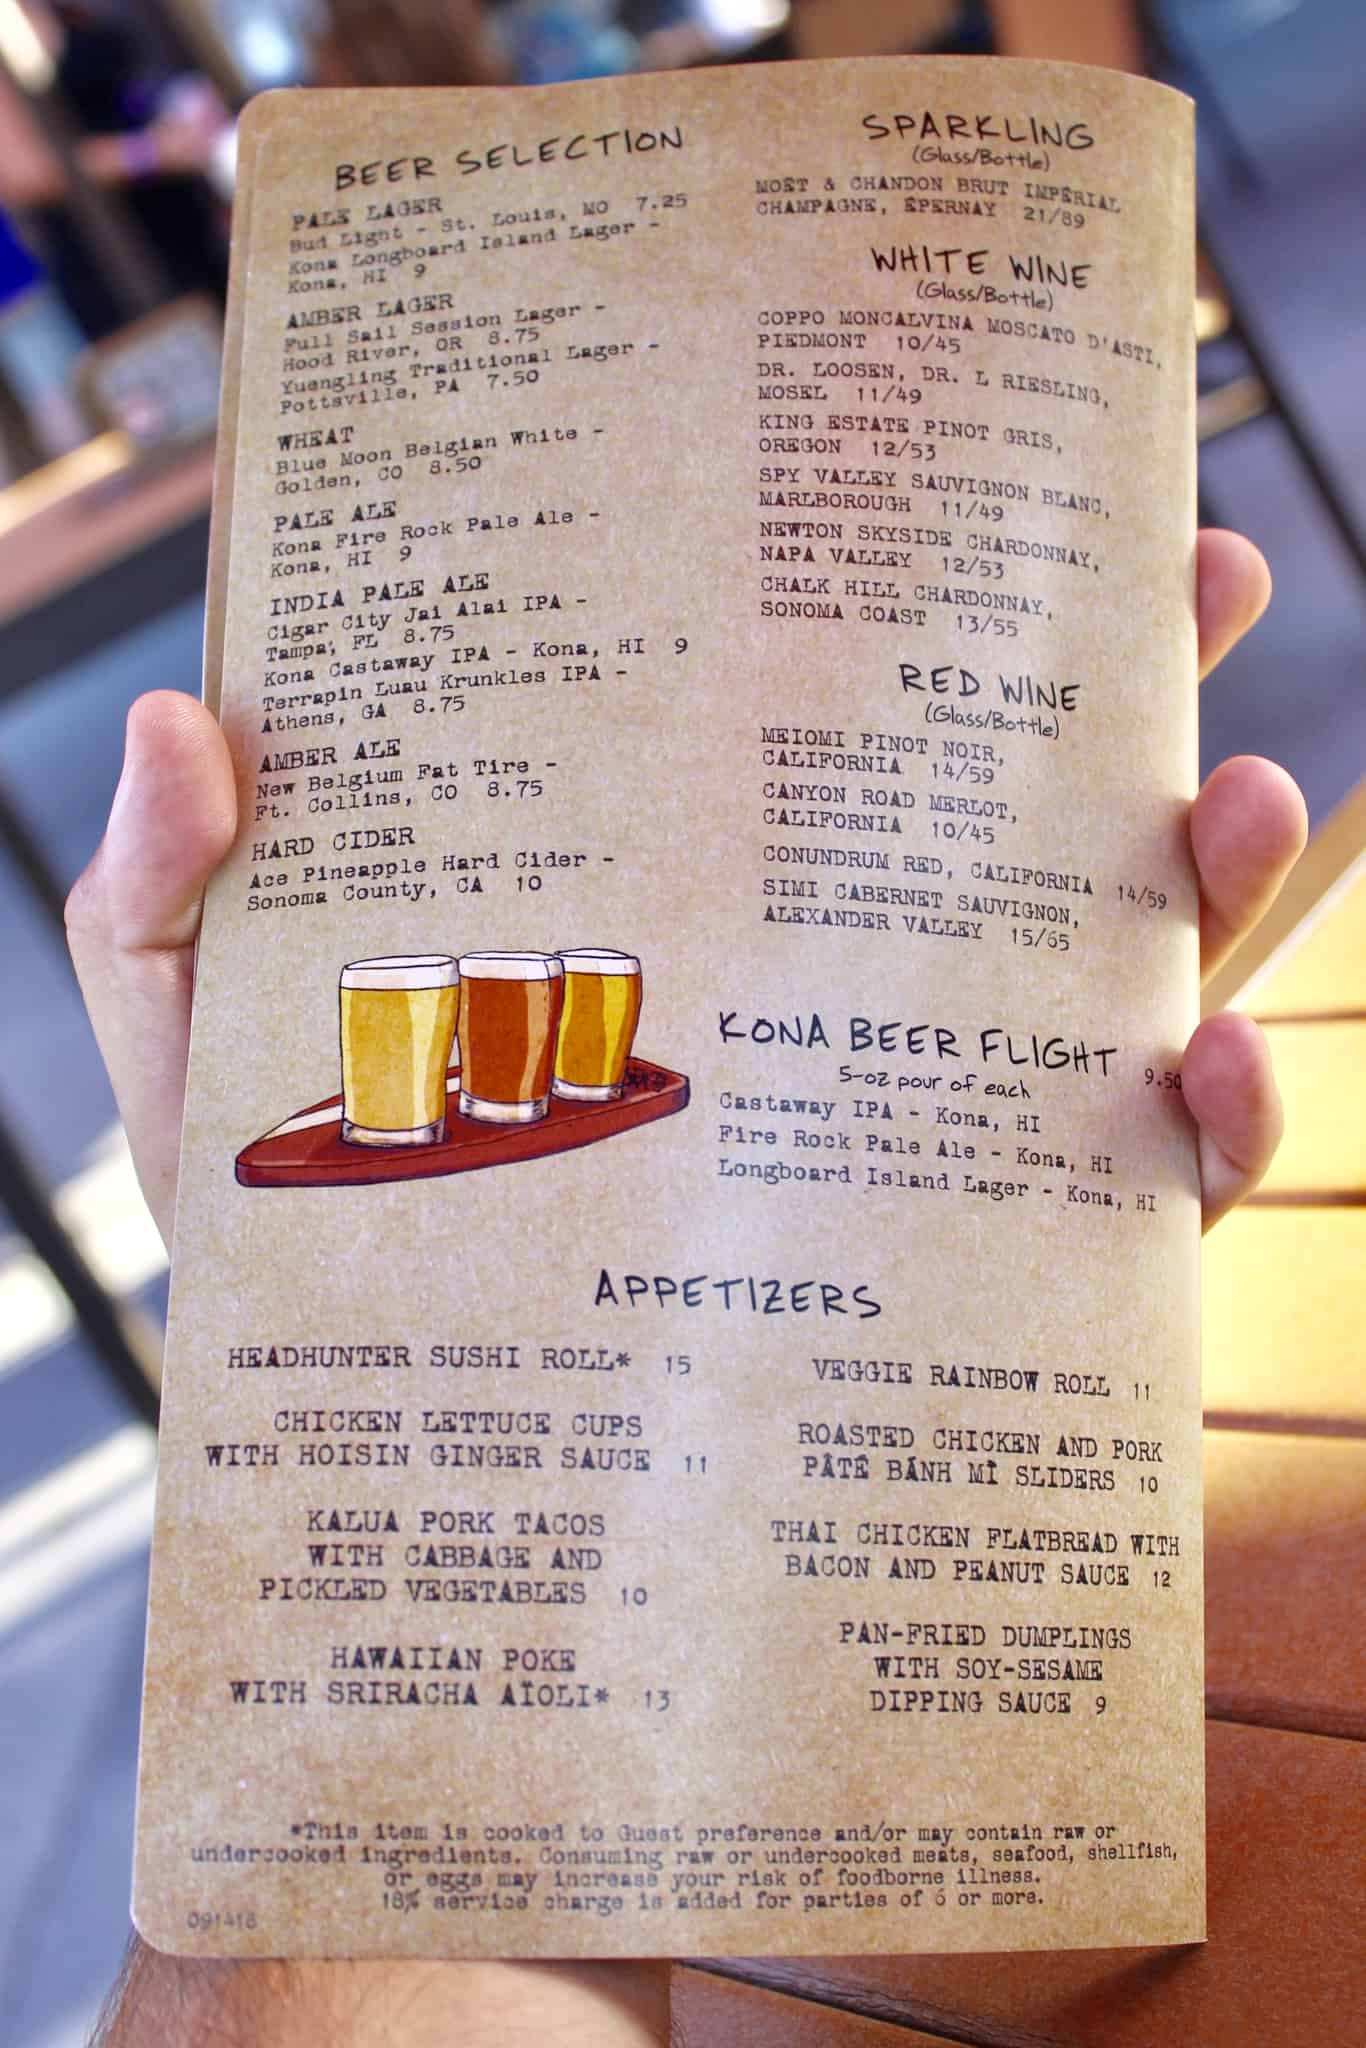 BEER SELECTION
PALE LAGER
Bud Light - St. Louis, MO 7.25
Kona Longboard Island Lager -
Kona, HI 9
AMBER LAGER
Full Sail Session Lager -
Hood River, OR 8.75
Yuengling Traditional Lager -
Pottsville, PA 7.50
WHEAT
Blue Moon Belgian White -
Golden, CO 8.50
PALE ALE
Kona Fire Rock Pale Ale -
Kona, HI 9
INDIA PALE ALE
Cigar City Jai Alai IPA -
Tampa, FL 8.75
Kona Castaway IPA - Kona, HI 9
Terrapin Luau Krunkles IPA -
Athens, GA 8.75
AMBER ALE
New Belgium Fat Tire -
Ft. Collins, CO 8.75
HARD CIDER
Ace Pineapple Hard Cider -
Sonoma County, CA 10
SPARKLING
(Glass/Bottle)
MOËT & CHANDON BRUT IMPÉRIAL
CHAMPAGNE, ÉPERNAY 21/89
WHITE WINE
(Glass/Bottle)
COPPO MONCALVINA MOSCATO D'ASTI,
PIEDMONT 10/45
DR. LOOSEN, DR. L RIESLING,
MOSEL 11/49
KING ESTATE PINOT GRIS,
OREGON 12/53
SPY VALLEY SAUVIGNON BLANC,
MARLBOROUGH 11/49
NEWTON SKYSIDE CHARDONNAY,
NAPA VALLEY 12/53
CHALK HILL CHARDONNAY,
SONOMA COAST 13/55
RED WINE
(Glass/Bottle)
MEIOMI PINOT NOIR,
CALIFORNIA 14/59
CANYON ROAD MERLOT,
CALIFORNIA 10/45
CONUNDRUM RED, CALIFORNIA 14/59
SIMI CABERNET SAUVIGNON,
ALEXANDER VALLEY 15/65
KONA BEER FLIGHT 9.50
5-oz pour of each
Castaway IPA - Kona, HI
Fire Rock Pale Ale - Kona, HI
Longboard Island Lager - Kona, HI
APPETIZERS
HEADHUNTER SUSHI ROLL* 15
CHICKEN LETTUCE CUPS
WITH HOISIN GINGER SAUCE 11
KALUA PORK TACOS
WITH CABBAGE AND
PICKLED VEGETABLES 10
HAWAIIAN POKE
WITH SRIRACHA AÏOLI* 13
VEGGIE RAINBOW ROLL 11
ROASTED CHICKEN AND PORK
PÂTÉ BÁNH MÌ SLIDERS 10
THAI CHICKEN FLATBREAD WITH
BACON AND PEANUT SAUCE 12
PAN-FRIED DUMPLINGS
WITH SOY-SESAME
DIPPING SAUCE 9
*This item is cooked to Guest preference and/or may contain raw or
undercooked ingredients. Consuming raw or undercooked meats, seafood, shellfish,
or eggs may increase your risk of foodborne illness.
18% service charge is added for parties of 6 or more.
091418